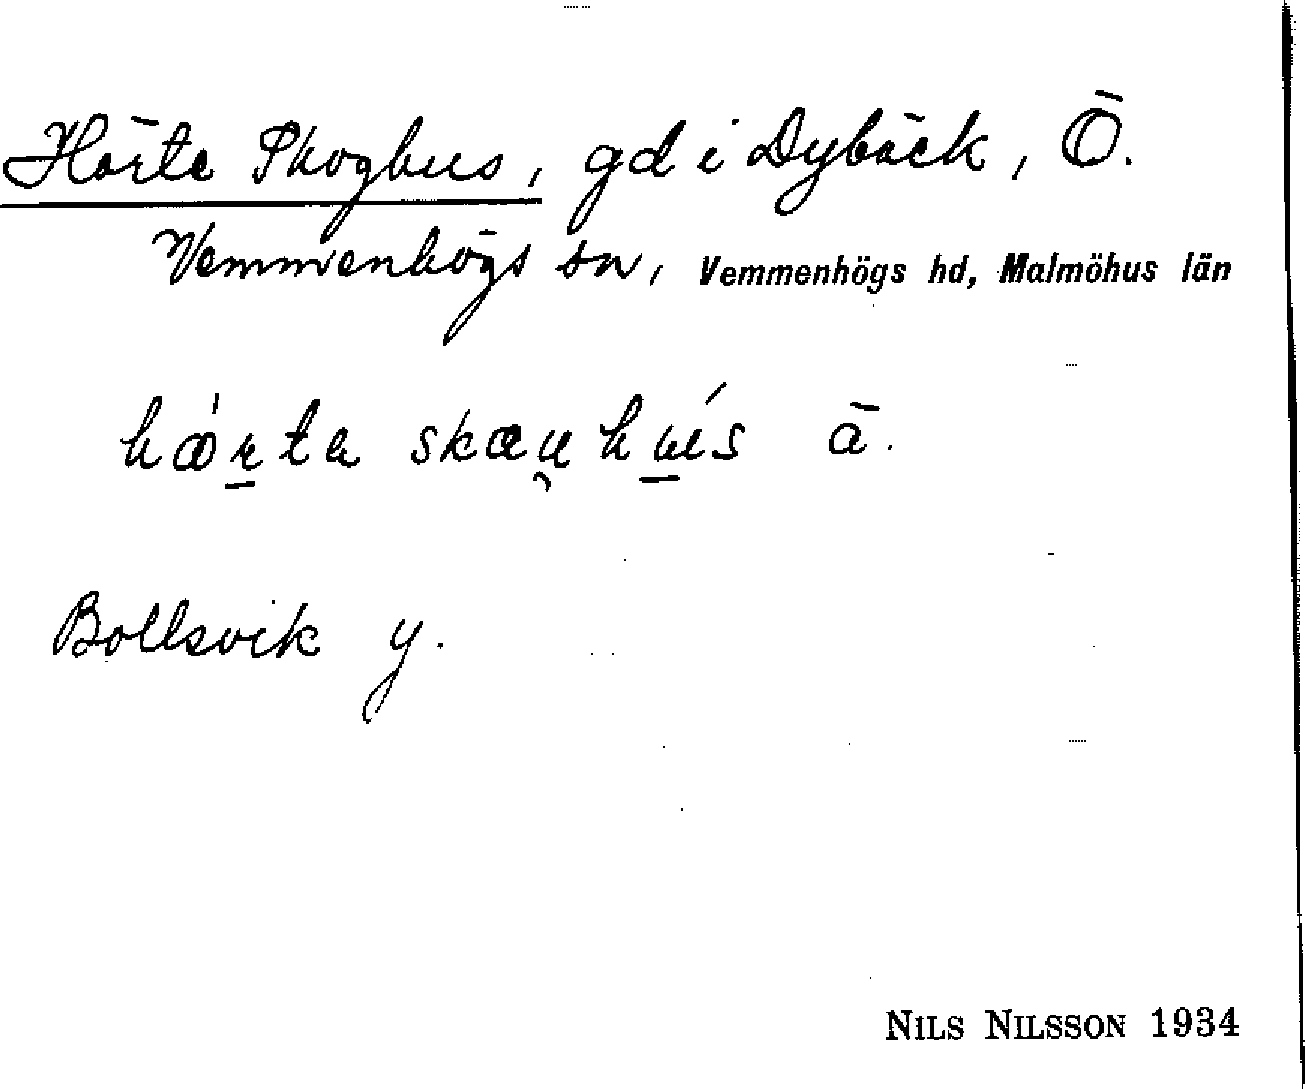 Hörte Skoghus, gd i Dybäck, Ö.
Vemmenhögs sn, Vemmenhögs hd, Malmöhus län
ā.
Bollsvik y.
NILS NILSSON 1934